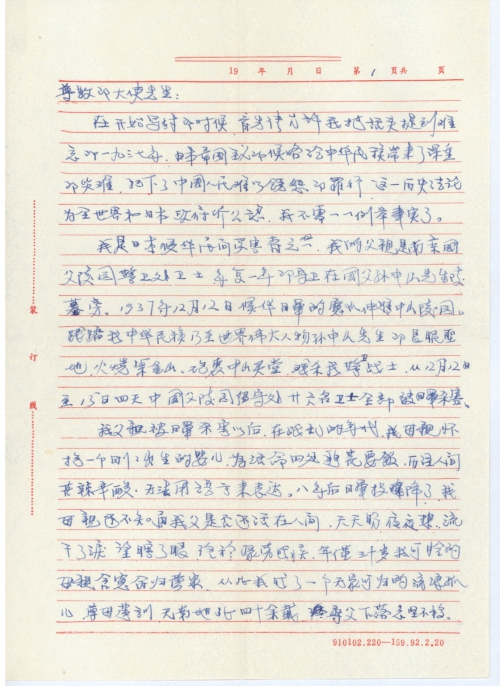 19 年 月 日 第 1 页共 页
尊敬的大使先生：
在开始写信的时候，首先请允许我把话头提到难
忘的一九三七年，日本帝国主义的侵略给中华民族带来了深重
的灾难，犯下了中国人民难以饶恕的罪行，这一历史结论
为全世界和日本政府所公认，我不需一一例举事实了。
我是日本侵华民间受害者之一，我的父亲是南京国
父陵园警卫处卫士
墓旁，1937年12月12日侵华日军的魔爪冲陵中山陵园。
我中华民族乃至世界伟大人物孙中山先生的长眠圣
地，火烧紫金山，炮轰中山灵堂，战士，从12月12日
至15日四天中国父陵园处廿六名卫士全部被日军杀害。
我父亲被日军杀害以后，在战乱的年代，我母亲怀
抱一个刚刚出生的婴儿，为活命四处逃荒要饭，历经人间
辛酸，无法用语言来表达。八年后日军投降了，我
母亲还不知道我父是否还活在人间，天天盼夜夜想，流
干了泪望瞎了眼，年仅三十岁我可怜的
母亲含冤命归黄泉，从此我成了一个无家可归的流浪孤
儿，尊母遗训天南地北四十余载，寻父下落
910102.220—159.92.2.20
装
订
线